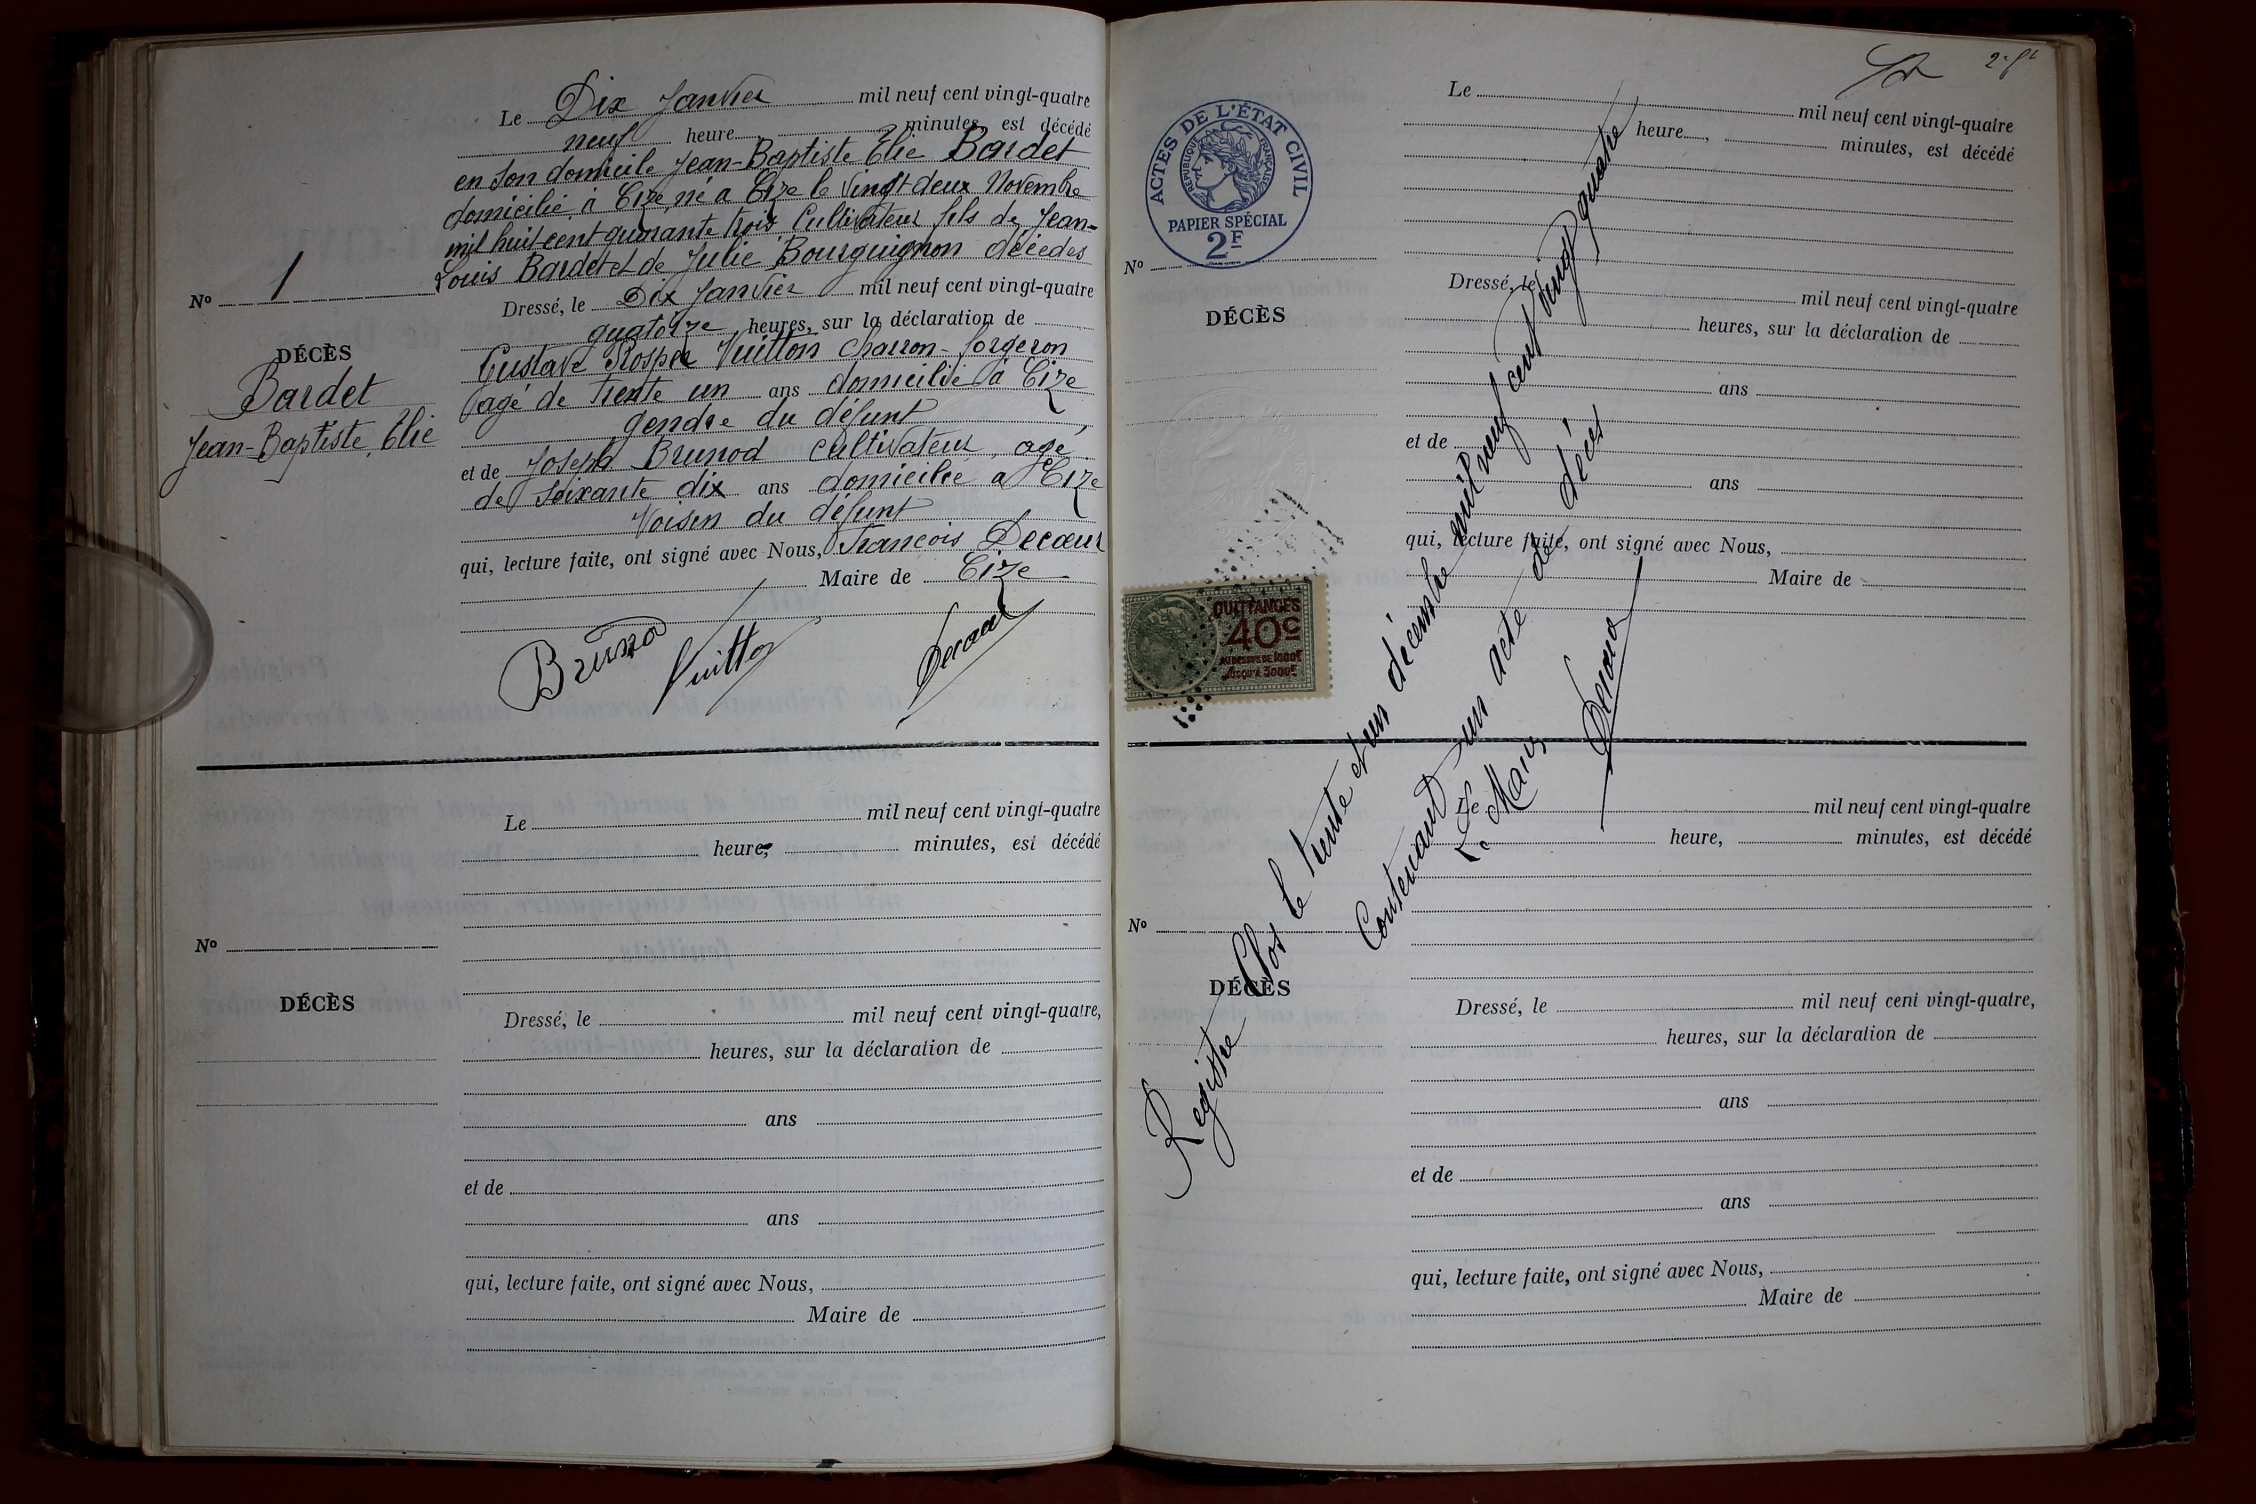 Le Dix Janvier mil neuf cent vingt-quatre
neuf heure minutes est décédé
en son domicile Jean-Baptiste Elie Bardet
domicilié à Cize, né a Cize le vingt deux Novembre
mil huit cent quarante trois Cultivateur fils de Jean-
Louis Bardet et de Julie Bourguignon décedes
Nº 1
Dressé, le Dix Janvier mil neuf cent vingt-quatre
quatorze heures, sur la déclaration de
DÉCÈS
Bardet
Jean-Baptiste, Elie
Gustave Prosper Vuitton charron-forgeron
agé de trente un ans domicilié à Cize
gendre du défunt
et de Joseph Brunod cultivateur, agé
de soixante dix ans domicilie a Cize
Voisin du défunt
qui, lecture faite, ont signé avec Nous, Francois Decœur
Maire de Cize
Brunod Vuitton Decœur
Le mil neuf cent vingt-quatre
heure, minutes, est décédé
Nº
DÉCÈS
Dressé, le mil neuf cent vingt-quatre,
heures, sur la déclaration de
ans
et de
ans
qui, lecture faite, ont signé avec Nous,
Maire de
2
ACTES DE L'ÉTAT CIVIL
RÉPUBLIQUE FRANÇAISE
PAPIER SPÉCIAL
2F
Le mil neuf cent vingt-quatre
heure, minutes, est décédé
Nº
DÉCÈS
Dressé, le mil neuf cent vingt-quatre
heures, sur la déclaration de
ans
et de
ans
qui, lecture faite, ont signé avec Nous,
Maire de
QUITTANCES
40c
AU DESSUS DE 1000F
JUSQU'À 3000F
Registre Clos le trente et un décembre mil neuf cent vingt quatre
Contenant un acte de décès
Le Maire
Decœur
Le mil neuf cent vingt-quatre
heure, minutes, est décédé
Nº
DÉCÈS
Dressé, le mil neuf cent vingt-quatre,
heures, sur la déclaration de
ans
et de
ans
qui, lecture faite, ont signé avec Nous,
Maire de